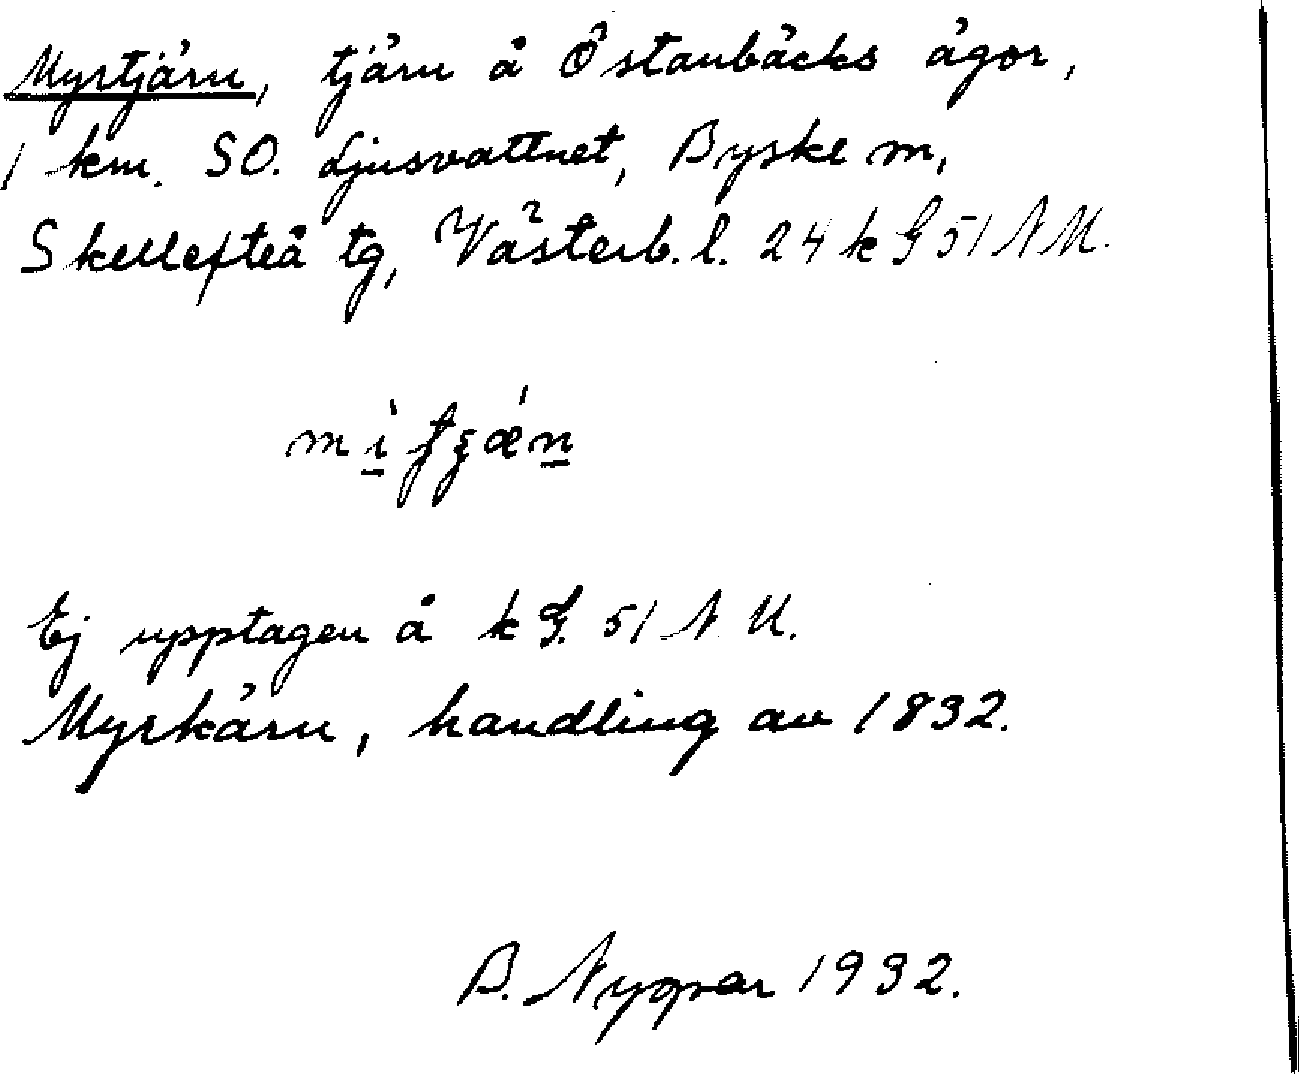 Myrtjärn, tjärn å Östanbäcks ägor,
1 km. SO. Ljusvattnet, Byske sn,
Skellefteå tg, Västerb. l. 24 k G 51 N U.
Ej upptagen å k G. 51 N. U.
Myrkärn, handling av 1832.
B. Nygren 1932.